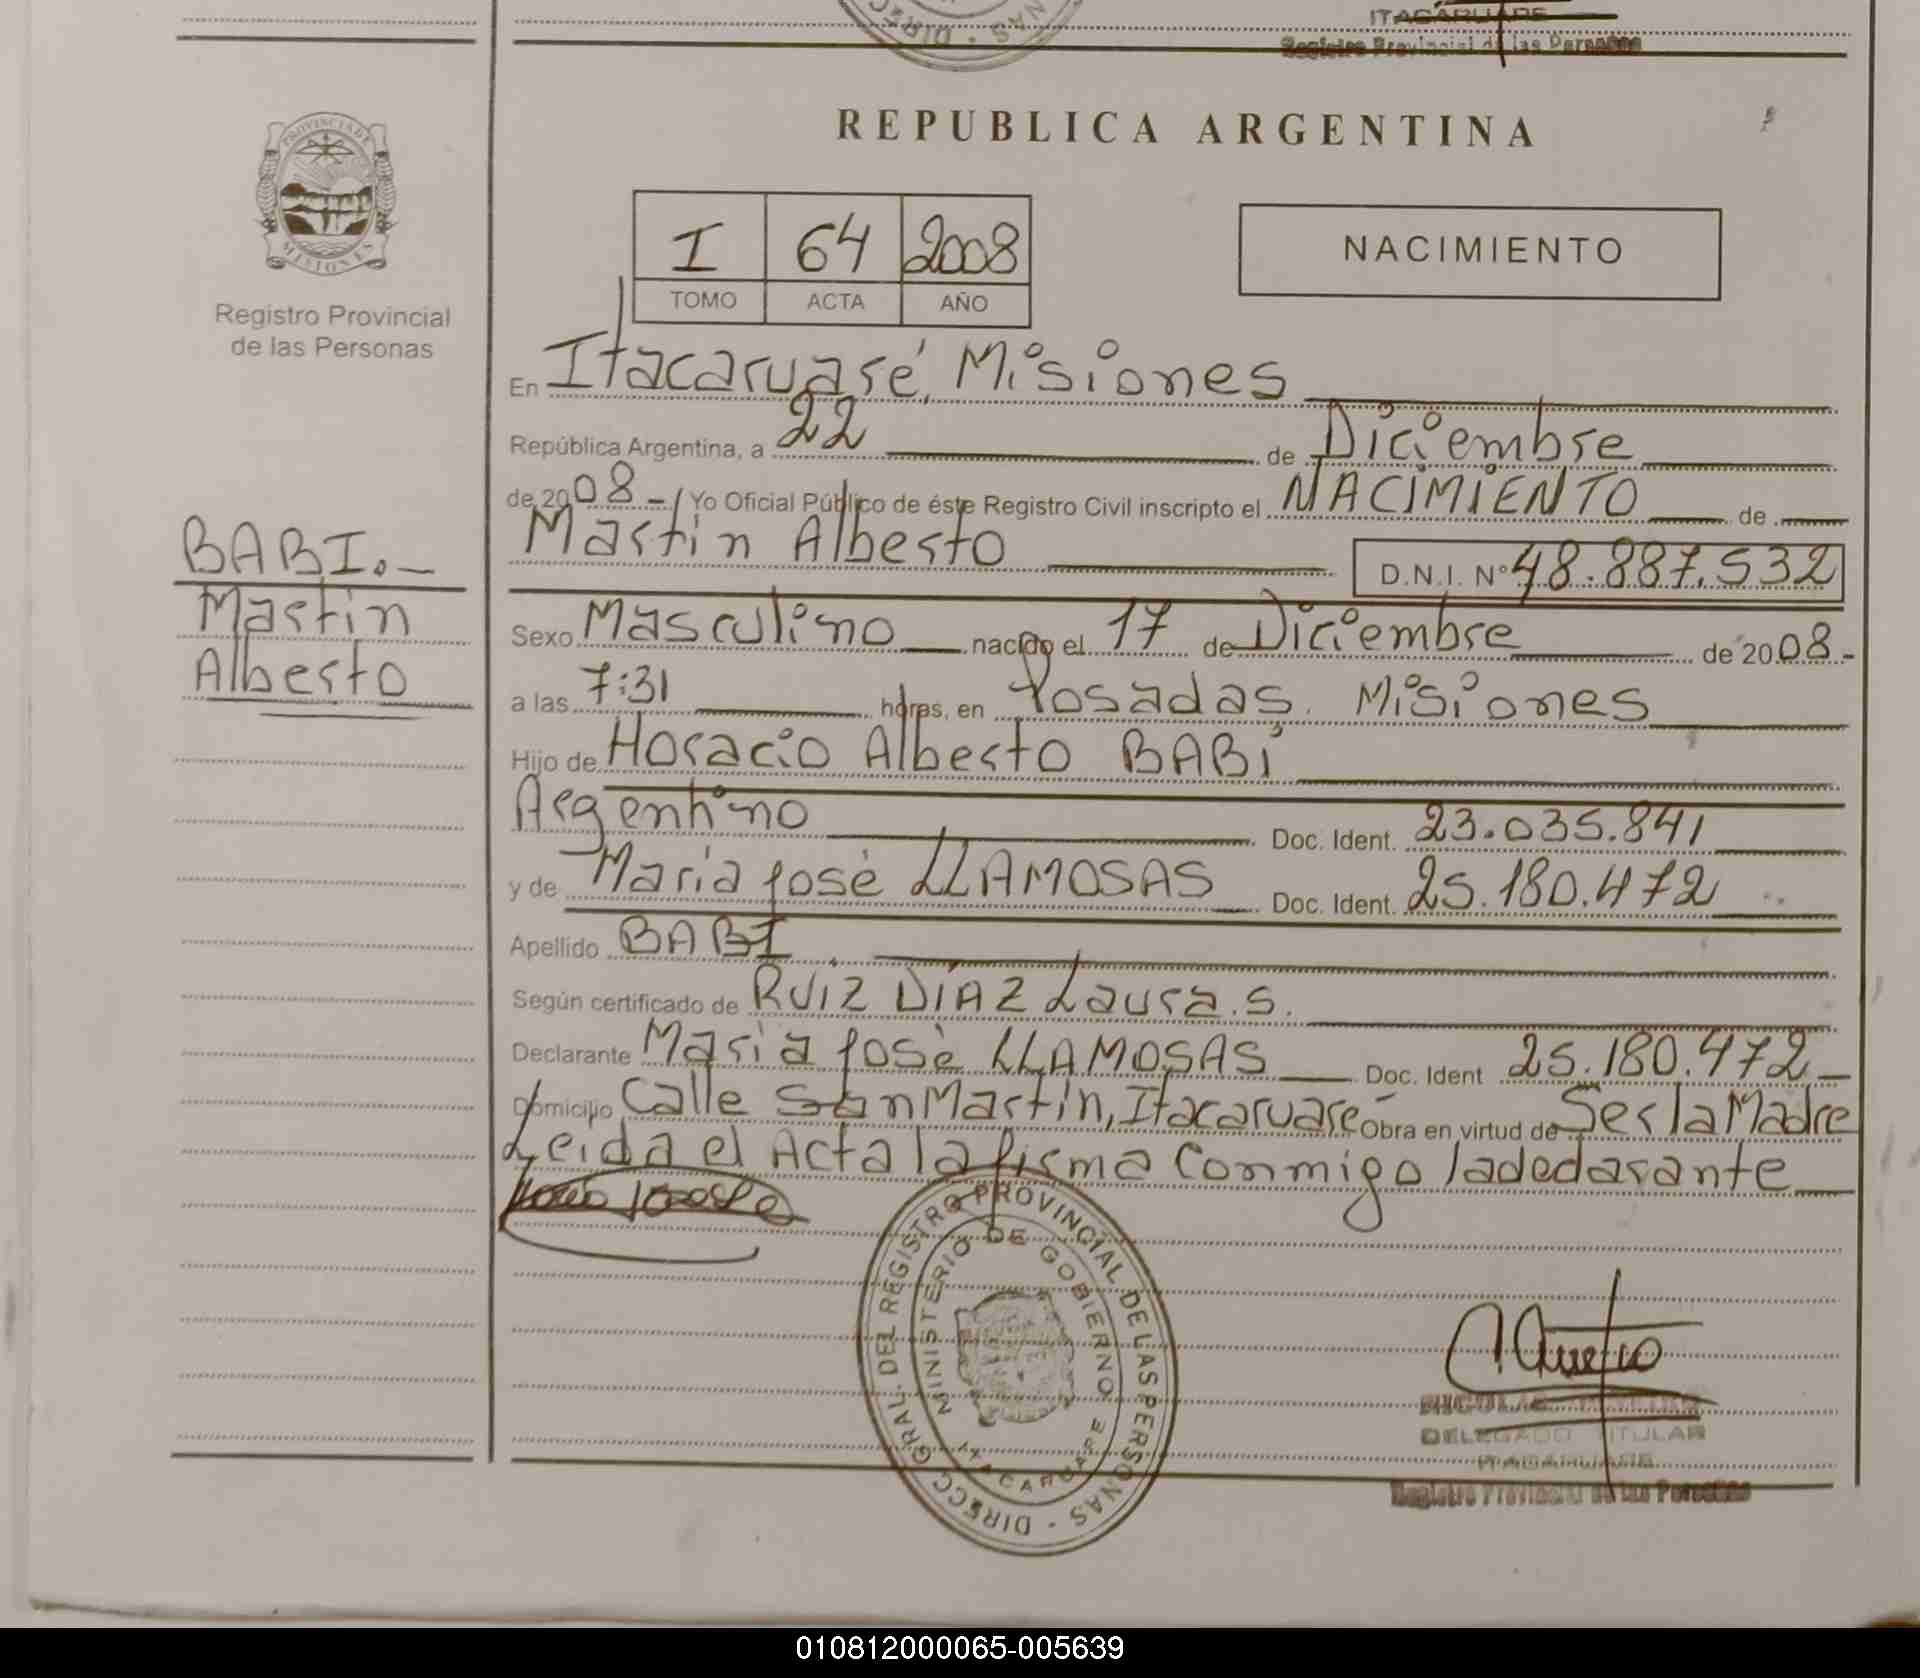 ITACARUARE
Registro Provincial de las Personas
PROVINCIA DE
MISIONES
Registro Provincial
de las Personas
REPUBLICA ARGENTINA
I 64 2008
TOMO ACTA AÑO
NACIMIENTO
En Itacaruaré, Misiones
República Argentina, a 22 de Diciembre
de 2008.- Yo Oficial Público de éste Registro Civil inscripto el NACIMIENTO de
Martin Alberto D.N.I. Nº 48.887.532
BABI.-
Martin
Alberto
Sexo Masculino nacido el 17 de Diciembre de 2008.-
a las 7:31 horas, en Posadas. Misiones
Hijo de Horacio Alberto BABI
Argentino Doc. Ident. 23.035.841
y de Maria José LLAMOSAS Doc. Ident. 25.180.472
Apellido BABI
Según certificado de RUIZ DIAZ Laura.S.
Declarante Maria José LLAMOSAS Doc. Ident 25.180.472
Domicilio Calle San Martin, Itacaruaré Obra en virtud de Ser la Madre
Leida el Acta la firma Conmigo la declarante
DIRECC GRAL. DEL REGISTRO PROVINCIAL DE LAS PERSONAS
MINISTERIO DE GOBIERNO
ITACARUARE
DELEGADO TITULAR
ITACARUARE
Registro Provincial de las Personas
010812000065-005639